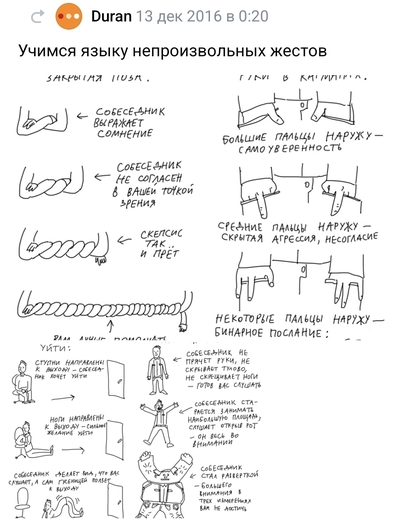 Duran 13 дек 2016 в 0:20
Учимся языку непроизвольных жестов
ЗАКРЫТАЯ ПОЗА:
СОБЕСЕДНИК
ВЫРАЖАЕТ
СОМНЕНИЕ
СОБЕСЕДНИК
НЕ СОГЛАСЕН
В ВАШЕЙ ТОЧКОЙ
ЗРЕНИЯ
СКЕПСИС
ТАК
И ПРЁТ
ВАМ ЛУЧШЕ
РУКИ В КАРМАНАХ:
БОЛЬШИЕ ПАЛЬЦЫ НАРУЖУ —
САМОУВЕРЕННОСТЬ
СРЕДНИЕ ПАЛЬЦЫ НАРУЖУ —
СКРЫТАЯ АГРЕССИЯ, НЕСОГЛАСИЕ
НЕКОТОРЫЕ ПАЛЬЦЫ НАРУЖУ —
БИНАРНОЕ ПОСЛАНИЕ:
УЙТИ:
СТУПНИ НАПРАВЛЕНЫ
К ВЫХОДУ — СОБЕСЕД-
НИК ХОЧЕТ УЙТИ
НОГИ НАПРАВЛЕНЫ
К ВЫХОДУ — СИЛЬНОЕ
ЖЕЛАНИЕ УЙТИ
СОБЕСЕДНИК ДЕЛАЕТ ВИД, ЧТО ВАС
СЛУШАЕТ, А САМ ГУСЕНИЦЕЙ ПОЛЗЕТ
К ВЫХОДУ
СОБЕСЕДНИК НЕ
ПРЯЧЕТ РУКИ, НЕ
СКРЫВАЕТ ТУЛОВО,
НЕ СКРЕЩИВАЕТ НОГИ
— ГОТОВ ВАС СЛУШАТЬ
СОБЕСЕДНИК СТА-
РАЕТСЯ ЗАНИМАТЬ
НАИБОЛЬШУЮ ПЛОЩАДЬ,
СЛУШАЕТ ОТКРЫВ РОТ
— ОН ВЕСЬ ВО
ВНИМАНИИ
СОБЕСЕДНИК
СТАЛ РАЗВЕРТКОЙ
— БОЛЬШЕГО
ВНИМАНИЯ В
ТРЕХ ИЗМЕРЕНИЯХ
ВАМ НЕ ДОСТИЧЬ